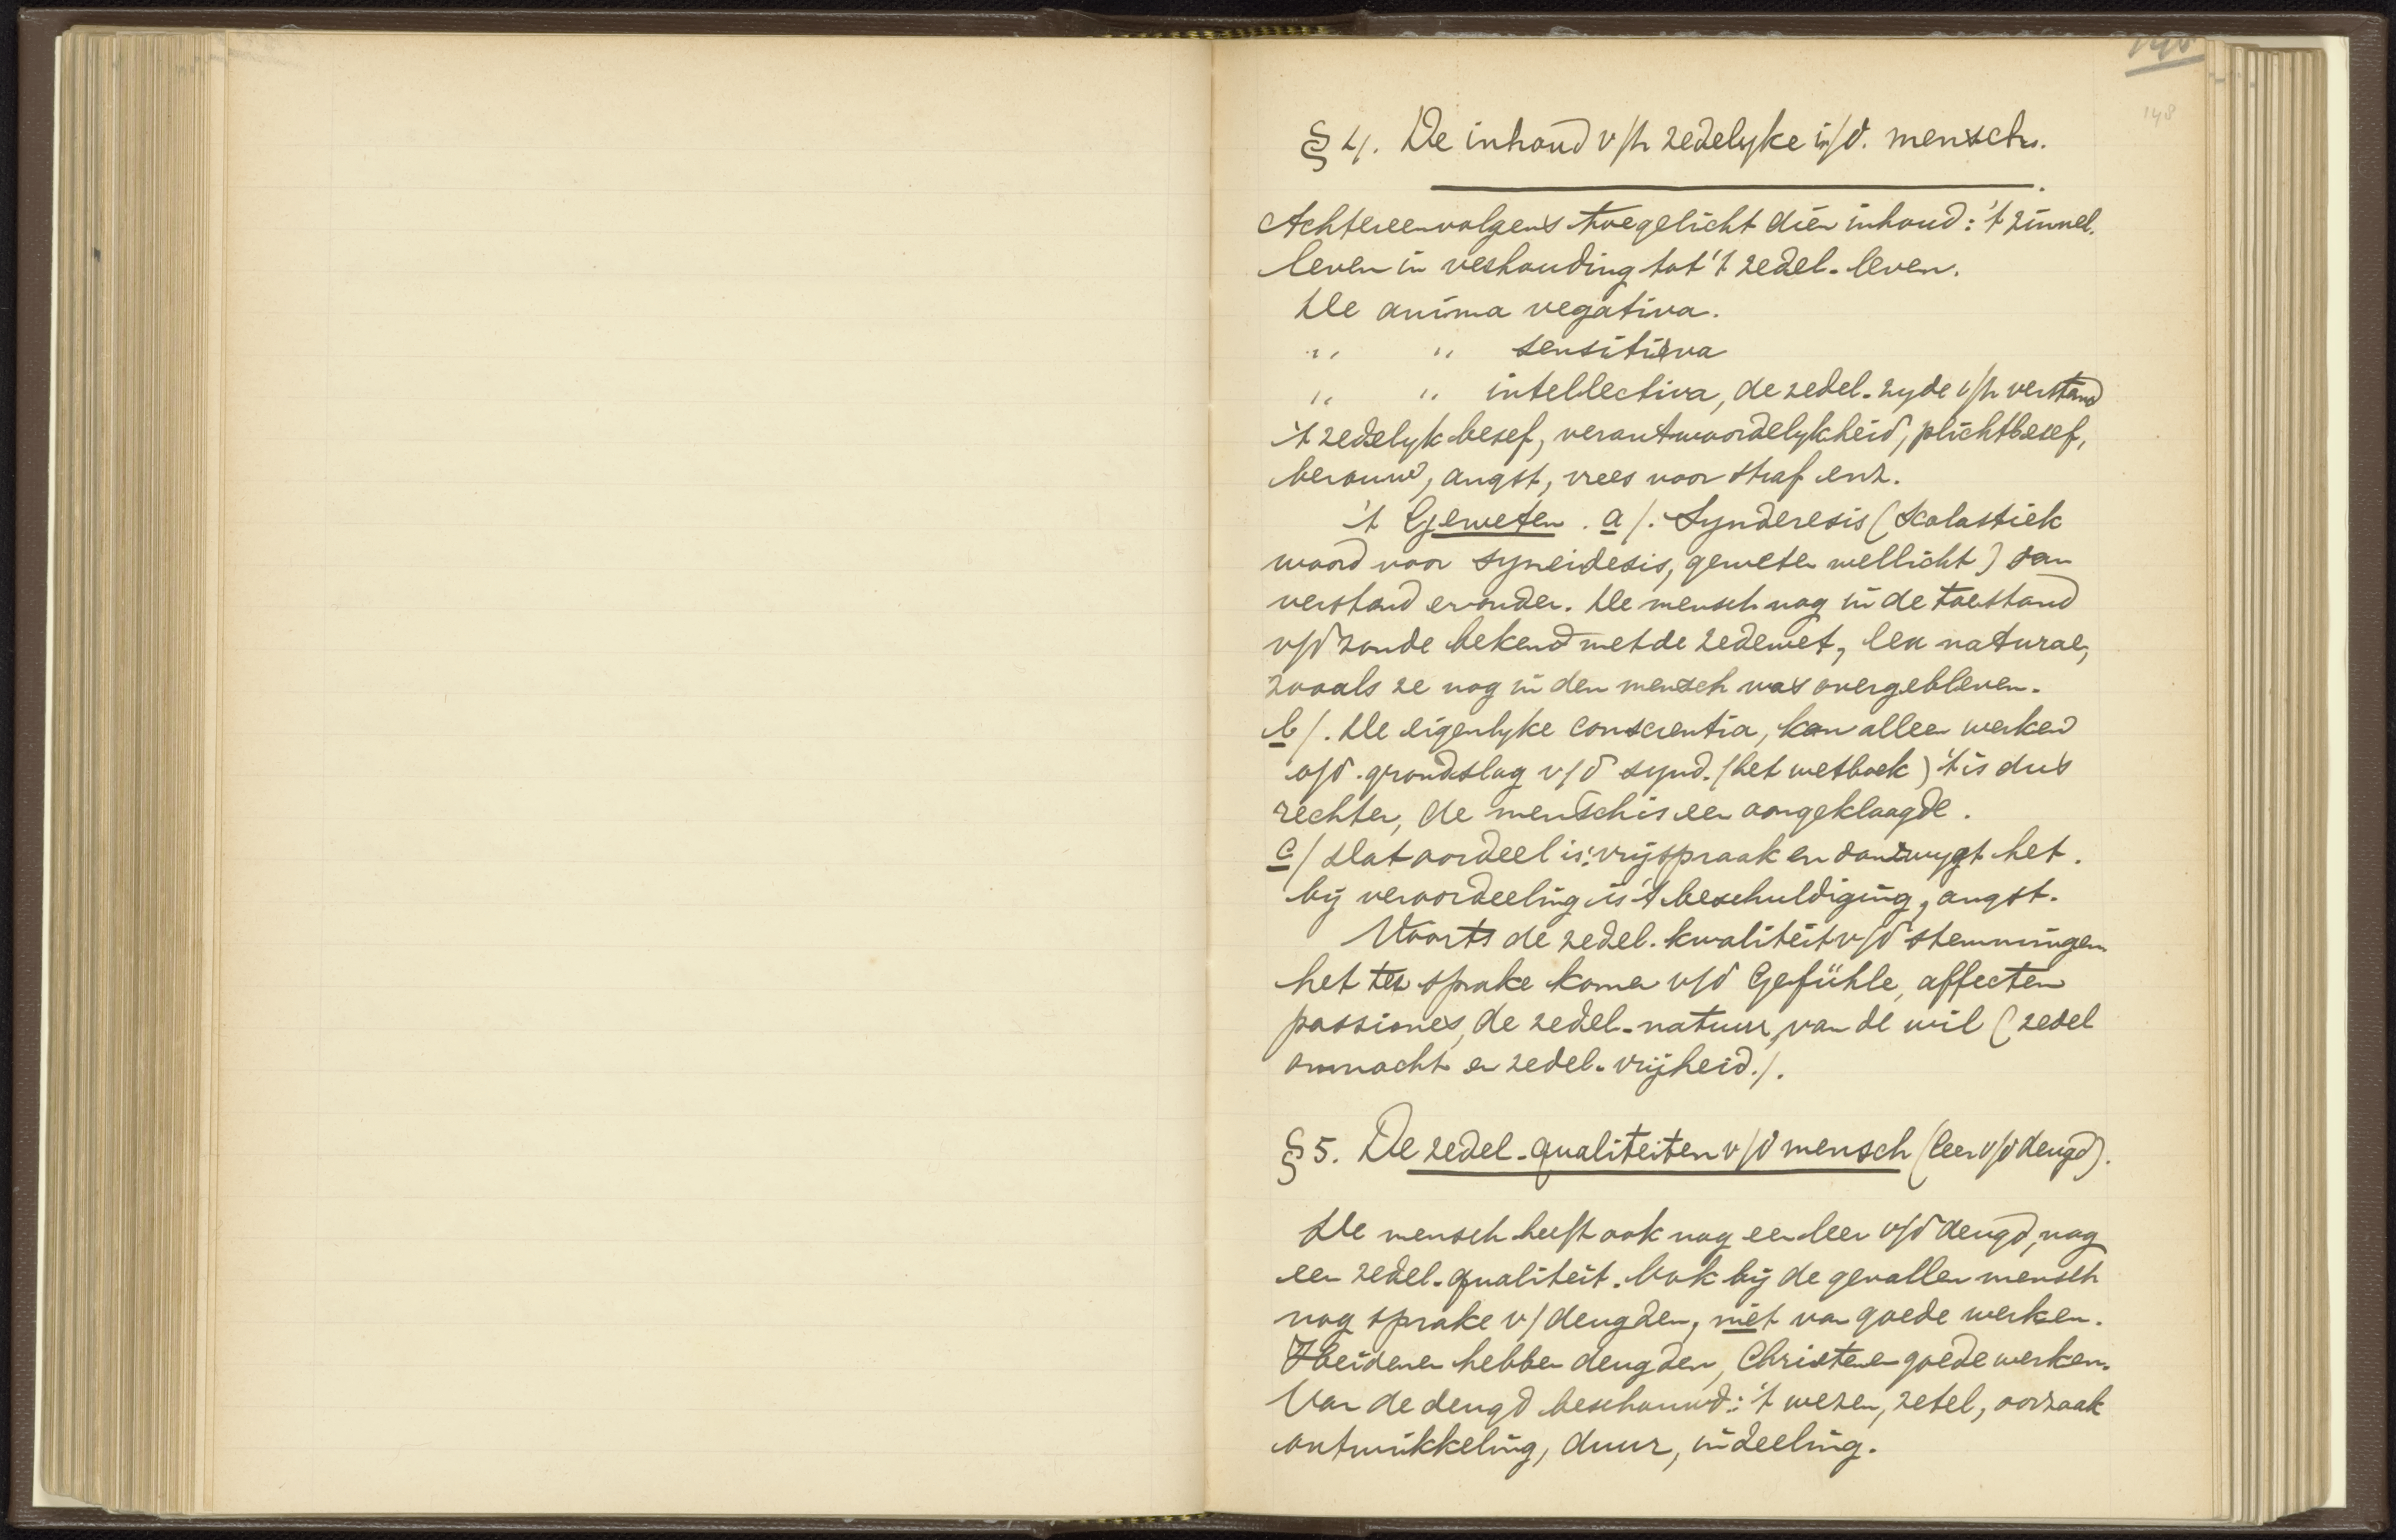 148
§ 4. De inhoud v/h zedelyke i/d. mensch.
Achtereenvolgens toegelicht dien inhoud: 't zinnel.
leven in verhouding tot 't zedel. leven.
De anima vegativa.
" " sensitieva
" " intellectiva, de zedel. zyde v/h verstand
't zedelyk besef, verantwoordelykheid, plichtbesef,
berouw, angst, vrees voor straf enz.
't Geweten. a/. Synderesis (Scolastiek
woord voor syneidesis, geweten wellicht) dan
verstand eronder. De mensch nog in de toestand
v/d zonde bekend met de zedewet, lex naturae,
zooals ze nog in den mensch was overgebleven.
b/. De eigenlyke conscientia, kan alleen werken
o/d. grondslag v/d synd. (het wetboek) 't is dus
rechter, de mensch is een aangeklaagde.
c/ Dat oordeel is: vrijspraak en dan zwygt het.
bij veroordeeling is 't beschuldiging, angst.
Voorts de zedel. kwaliteit v/d stemmingen
het ter sprake komen v/d Gefühle, affecten
passiones, de zedel. natuur, van de wil (zedel
onmacht en zedel. vrijheid./.
§ 5. De zedel. qualiteiten v/d mensch (leer v/d deugd).
De mensch heeft ook nog een leer v/d deugd, nog
een zedel. qualiteit. Ook bij de gevallen mensch
nog sprake v/ deugden, niet van goede werken.
Heidenen hebben deugden, Christenen goede werken.
Van de deugd beschouwd: 't wezen, zetel, oorzaak
ontwikkeling, duur, indeeling.